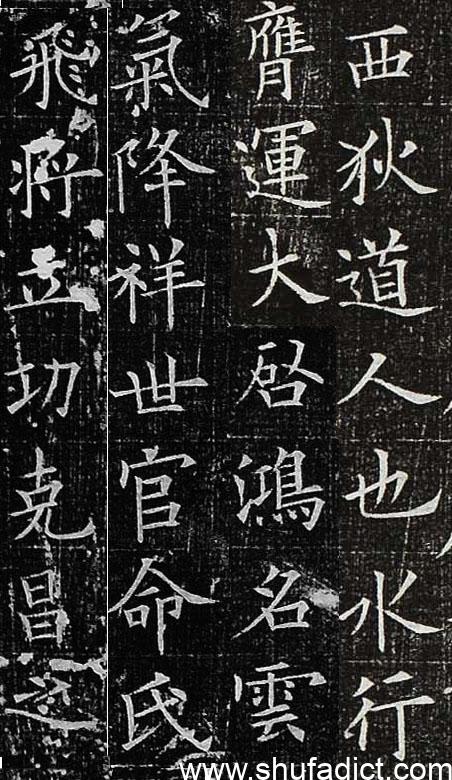 西狄道人也水行
膺運大启鴻名雲
氣降祥世官命氏
飛將立功克昌
www.shufadict.com